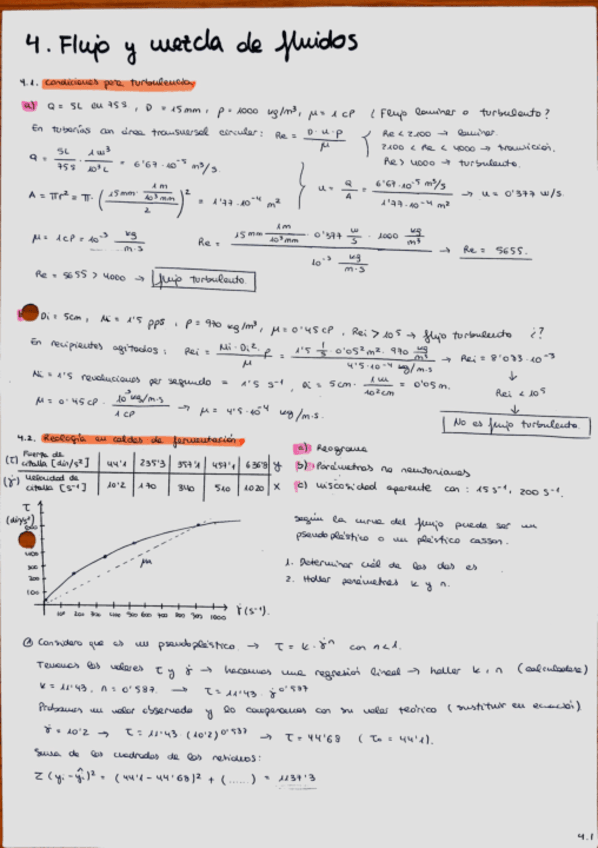 4. Flujo y mezcla de fluidos
4.1. Condiciones para turbulencia
a) Q = 5L en 75S, D = 15mm, ρ = 1000 kg/m³, μ = 1 cP ¿Flujo laminar o turbulento?
En tuberías con área transversal circular: Re = D·u·ρ / μ { Re < 2100 → laminar.
2100 < Re < 4000 → transición.
Re > 4000 → turbulento.
Q = 5L/75S · 1m³/10³L = 6'67·10⁻⁵ m³/s.
A = πr² = π·(15mm · 1m/10³mm / 2)² = 1'77·10⁻⁴ m²
u = Q/A = 6'67·10⁻⁵ m³/s / 1'77·10⁻⁴ m² → u = 0'377 m/s.
μ = 1cP = 10⁻³ kg/m·s
Re = 15mm · 1m/10³mm · 0'377 m/s · 1000 kg/m³ / 10⁻³ kg/m·s → Re = 5655.
Re = 5655 > 4000 → flujo turbulento.
Di = 5cm, Ni = 1'5 rps, ρ = 970 kg/m³, μ = 0'45cP, Rei > 10⁵ → flujo turbulento ¿?
En recipientes agitados: Rei = Ni·Di²·ρ / μ = 1'5 1/s · 0'05² m² · 970 kg/m³ / 4'5·10⁻⁴ kg/m·s → Rei = 8'083·10⁻³
Ni = 1'5 revoluciones por segundo = 1'5 s⁻¹, Di = 5cm · 1m/10²cm = 0'05m.
↓
Rei < 10⁵
↓
μ = 0'45cP · 10⁻³kg/m·s / 1cP → μ = 4'5·10⁻⁴ kg/m·s.
No es flujo turbulento.
4.2. Reología en caldos de fermentación
(τ) Fuerza de cizalla [din/s²] 44'1 235'3 357'1 457'1 636'8 y
(γ̇) Velocidad de cizalla [s⁻¹] 10'2 170 340 510 1020 x
a) Reograma
b) Parámetros no newtonianos
c) viscosidad aparente con: 15 s⁻¹, 200 s⁻¹.
según la curva del flujo puede ser un
pseudoplástico o un plástico casson.
1. Determinar cuál de los dos es
2. Hallar parámetros k y n.
τ
(din/s²)
300
200
100
μ
100 200 300 400 500 600 700 800 900 1000 γ̇ (s⁻¹).
Considero que es un pseudoplástico. → τ = k·γ̇ⁿ con n<1.
Tenemos los valores τ y γ̇ → hacemos una regresión lineal → hallar k, n (calculadora)
k = 11'43, n = 0'587. → τ = 11'43·γ̇^0'587
Probamos un valor observado y lo comparamos con su valor teórico (sustituir en ecuación)
γ̇ = 10'2 → τ = 11'43·(10'2)^0'587 → τ = 44'68 (τ₀ = 44'1).
Suma de los cuadrados de los residuos:
Σ(yᵢ-ŷᵢ)² = (44'1-44'68)² + (......) = 1137'3
4.1